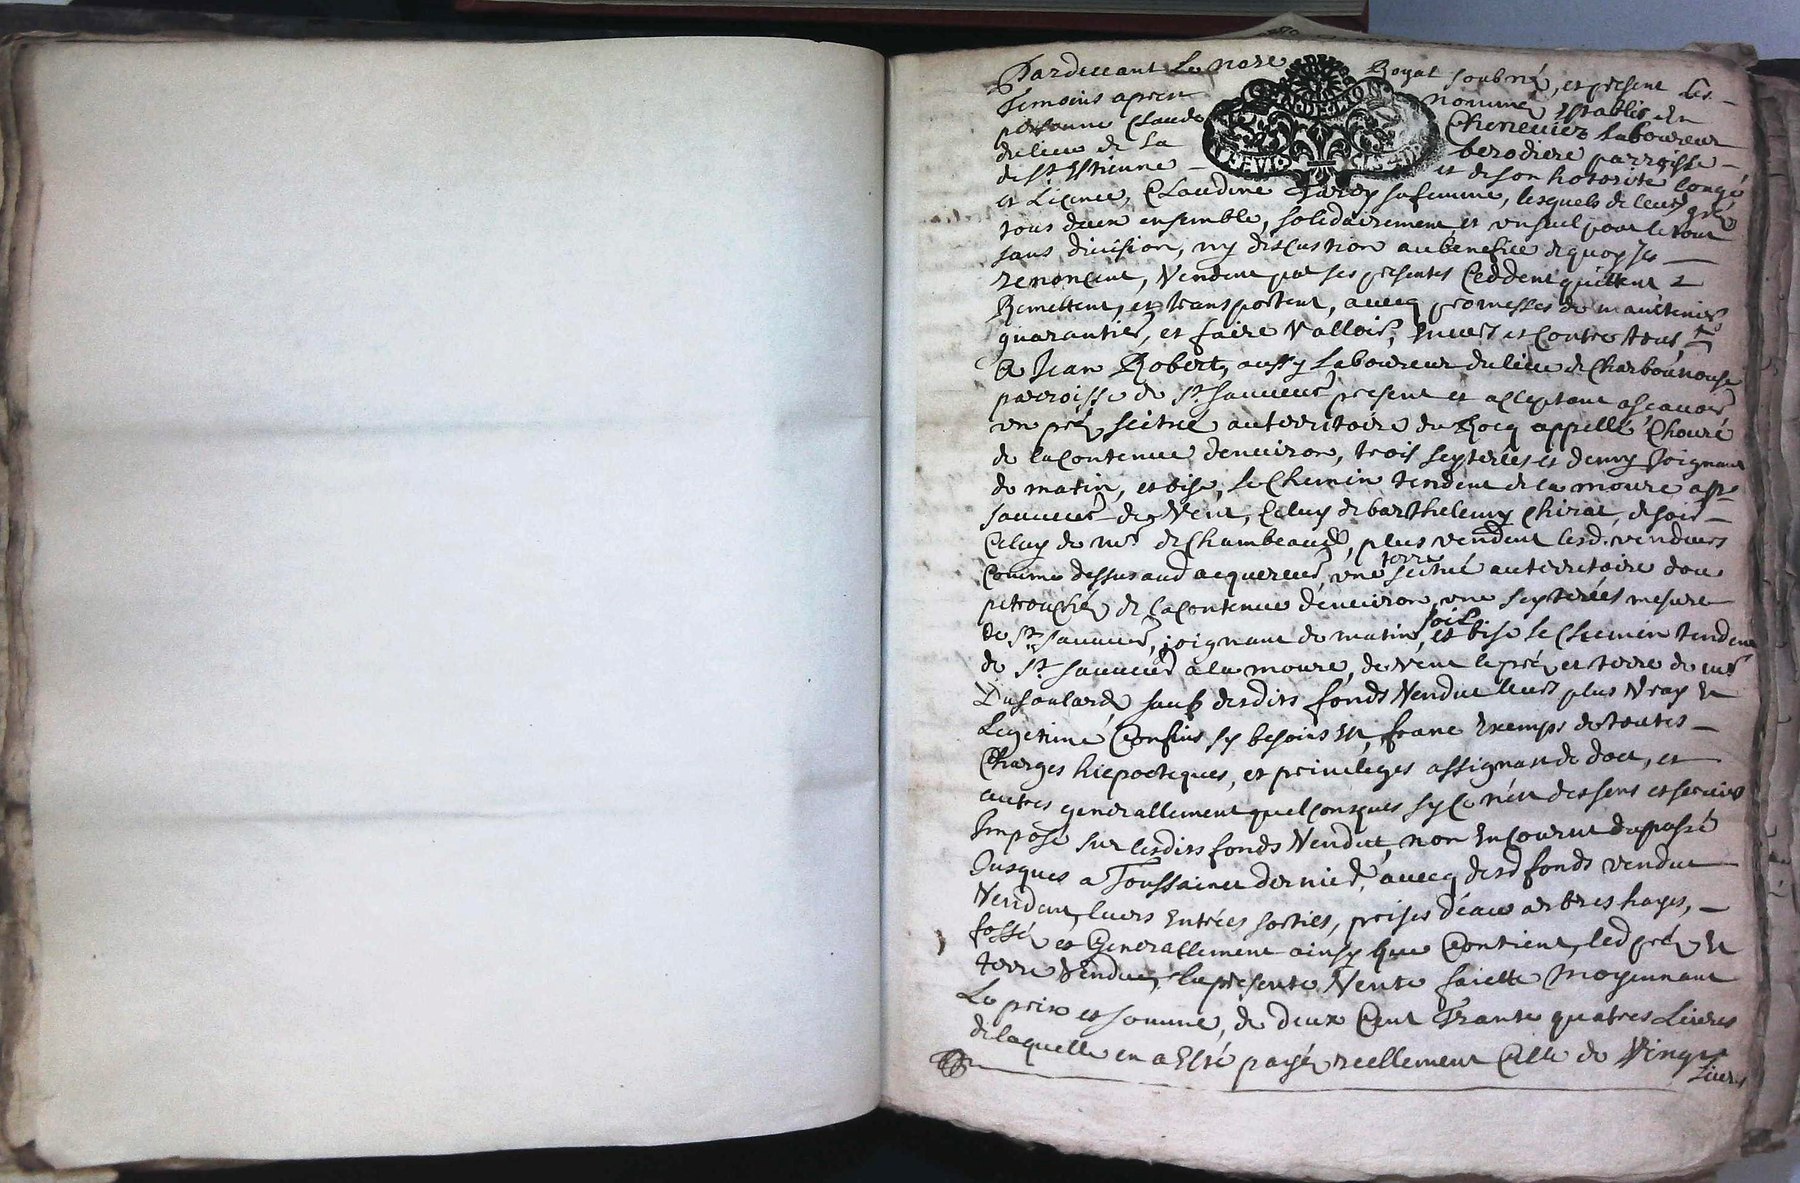 Pardevant Le nore Royal soubné, et présent les
Temoins apres nommé Establis En
personne Claude Chenevier Laboureur
du lieu de La berodiere parroisse
de St Estienne et de son hotorité congé
et Licence, Claudine sa femme, lesquels de leurs gré
tous deux ensemble, solidairement et un seul pour le tout
sans division, ny discution au benefice de quoy Jls
renoncent, Vendent par ses présentes Ceddent quittent &
Remettent, et transportent, avecq promesses de maintenir
guarantir, et faire Valloir, Envers et Contre tous
A Jean Robert, aussy Laboureur du lieu de Charbounouse
parroisse de St Sauveur présent et acceptant ascavoir
un pré scitué au territoire du Rocq appellé Chouré
de la Contenue denviron, trois septerées et demy Joignant
de matin, et bise, le Chemin tendent de la moure a St
sauveur de Vent, Celuy de barthelemy Chirat, de soir
Celuy de mr de Chambeaud, plus vendent lesd. vendeurs
Comme dessus aud acquereur, une terre scitué au territoire dou
petrouchéy de la Contenue d'environ, une septerées mesure
de St sauveur, joignant de matin, soir et bise le Chemin tendent
de St sauveur a la moure, de Vent le pré et terre de mr
Dusoulard, sauf desdits fonds Vendut leurs plus Vray Et
Legitime Confins sy besoins Et, franc Exemps de toutes
Charges hiepoteques, et privileges assignat de dot, et
autres generallement quelconques sy Ce n'et des sens et servis
Imposé sur lesdits fonds Vendut, non Encourut du passé
Jusques a Toussainct dernier, avecq desd fonds vendut
Vendent, leurs Entrées sorties, prises d'eau arbres hayes,
fossé et Generallement ainsy que Contient, led pré Et
terre Vendue, la présente Vente faiette Moyennant
Le prix et somme, de deux Cent Trante quatres Livres
de laquelle en a Esté payé reellement Celle de Vingt
Livres